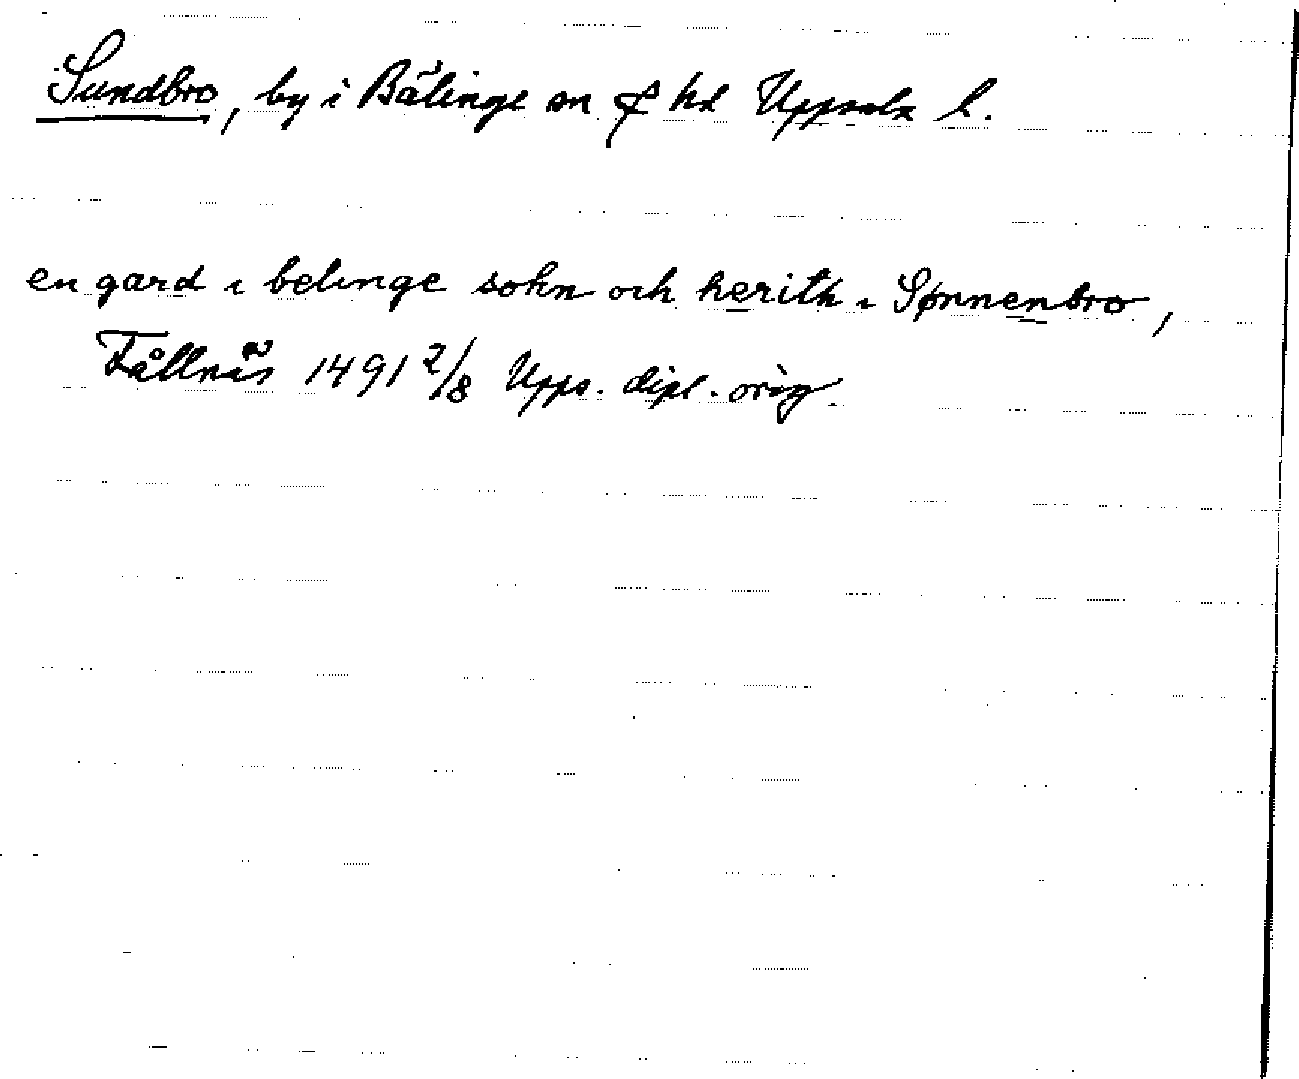 Sundbro, by i Bälinge sn & hd Uppsala l.
en gard i belinge sokn och herith i Sønnenbro,
Fållnäs 1491 2/8 Upps. dipl. orig.